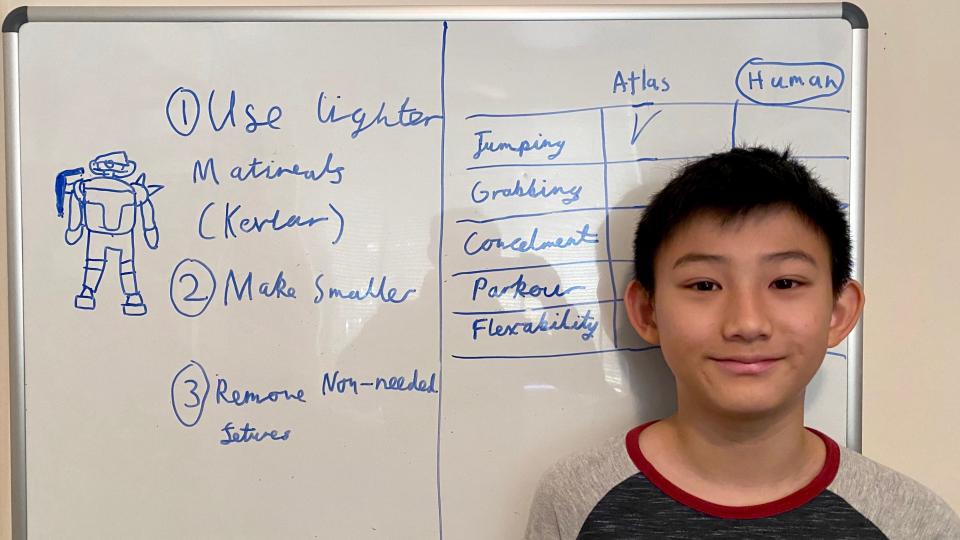 ① Use lighter
Matireals
(Kevlar)
② Make Smaller
③ Remove Non-needed
fetures
Atlas Human
Jumping ✓
Grabbing
Concelment
Parkour
Flexability